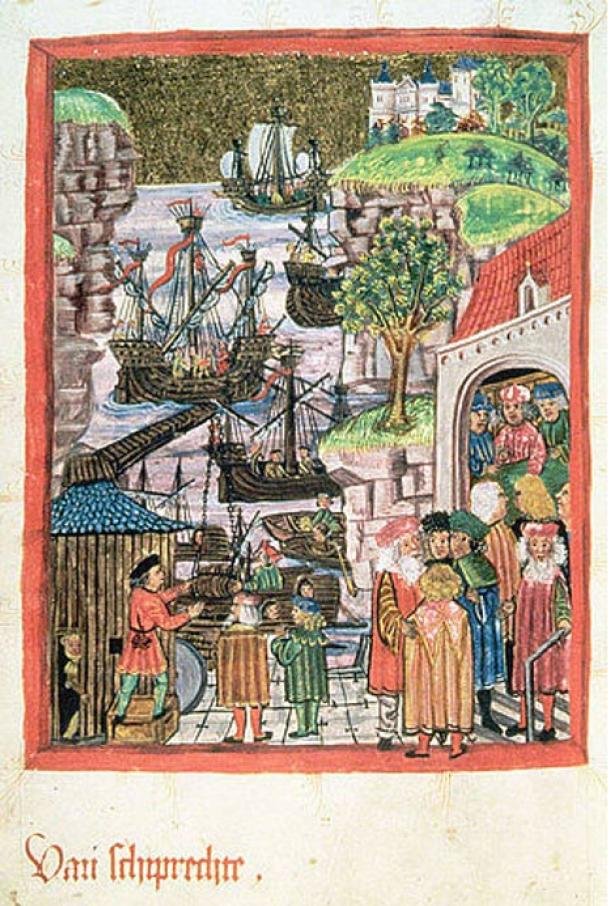 Van schiprechte.